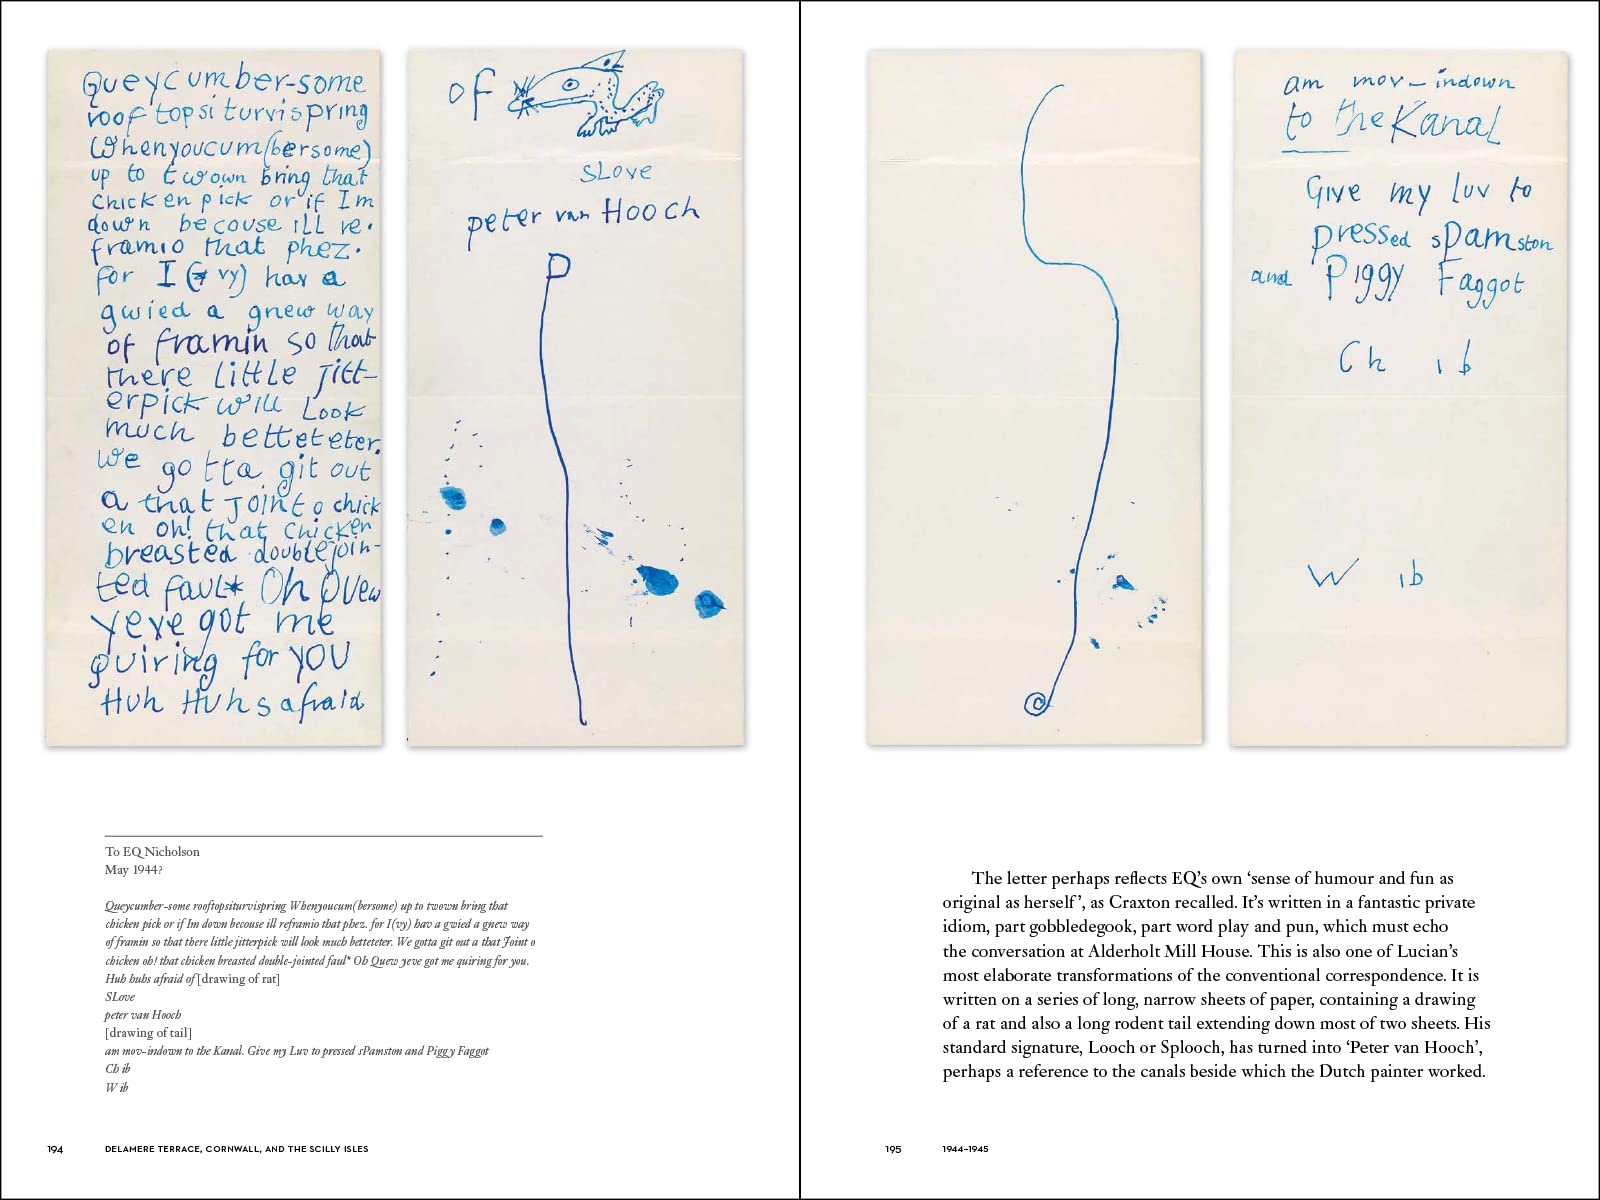 Queycumber-some
roof topsiturvispring
Whenyoucum(bersome)
up to twown bring that
chicken pick or if Im
down becouse ill re.
framio that phez.
for I (vy) hav a
gwied a gnew way
of framin so that
there little Jitt-
erpick will Look
much betteteter.
We gotta git out
a that Joint o chick
en oh! that chicken
breasted doublejoin-
ted faul* Oh Quew
yeve got me
quiring for you
Huh Huhs afraid
of
SLove
peter van Hooch
am mov-indown
to the Kanal
Give my Luv to
pressed sPamston
and Piggy Faggot
Ch ib
W ib
To EQ Nicholson
May 1944?
Queycumber-some rooftopsiturvispring Whenyoucum(bersome) up to twown bring that
chicken pick or if Im down becouse ill reframio that phez. for I(vy) hav a gwied a gnew way
of framin so that there little jitterpick will look much betteteter. We gotta git out a that Joint o
chicken oh! that chicken breasted double-jointed faul* Oh Quew yeve got me quiring for you.
Huh huhs afraid of [drawing of rat]
SLove
peter van Hooch
[drawing of tail]
am mov-indown to the Kanal. Give my Luv to pressed sPamston and Piggy Faggot
Ch ib
W ib
194 DELAMERE TERRACE, CORNWALL, AND THE SCILLY ISLES
The letter perhaps reflects EQ’s own ‘sense of humour and fun as
original as herself’, as Craxton recalled. It’s written in a fantastic private
idiom, part gobbledegook, part word play and pun, which must echo
the conversation at Alderholt Mill House. This is also one of Lucian’s
most elaborate transformations of the conventional correspondence. It is
written on a series of long, narrow sheets of paper, containing a drawing
of a rat and also a long rodent tail extending down most of two sheets. His
standard signature, Looch or Splooch, has turned into ‘Peter van Hooch’,
perhaps a reference to the canals beside which the Dutch painter worked.
195 1944–1945